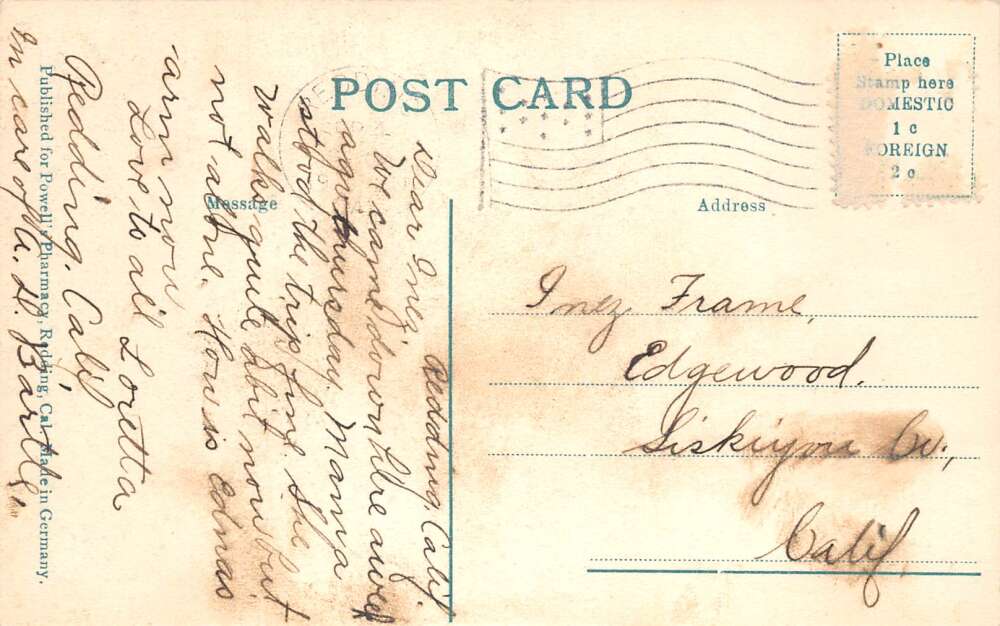 POST CARD
Place
Stamp here
DOMESTIC
1 c
FOREIGN
2 c
Message
Address
Redding, Calif.
Dear Inez,
We came down here a week
ago thursday. Mama
stood the trip fine. She
walks quite abit now but
not alone. How is Edna's
arm now
Love to all Loretta
Redding, Calif
In care of
Inez Frame,
Edgewood,
Siskiyou Co.,
Calif.
Published for Powell's Pharmacy, Redding, Cal. Made in Germany.